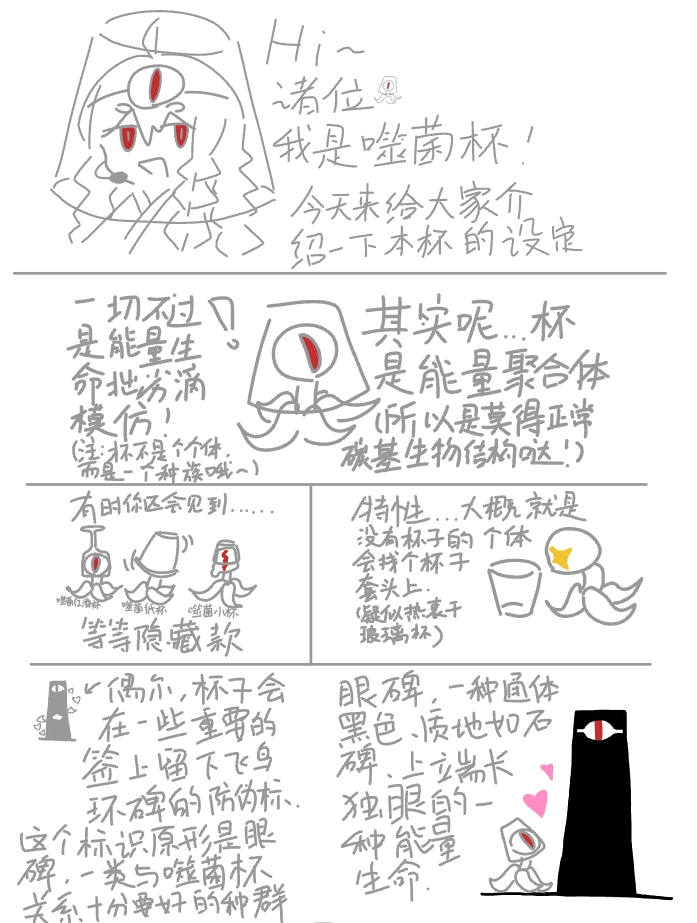 Hi~
诸位
我是噬菌杯!
今天来给大家介
绍一下本杯的设定
一切不过
是能量生
命拙劣滴
模仿!
(注:杯不是个个体,
而是一个种族哦~)
!?
其实呢...杯
是能量聚合体
(所以是莫得正常
碳基生物结构哒!)
有时你还会见到......
噬菌红酒杯
噬菌纸杯
噬菌小杯
等等隐藏款
特性...大概就是
没有杯子的个体
会找个杯子
套头上.
(疑似热衷于
玻璃杯)
偶尔,杯子会
在一些重要的
签上留下飞鸟
环碑的防伪标.
这个标识原形是眼
碑,一类与噬菌杯
关系十分要好的种群
眼碑,一种通体
黑色、质地如石
碑、上端长
独眼的一
种能量
生命.